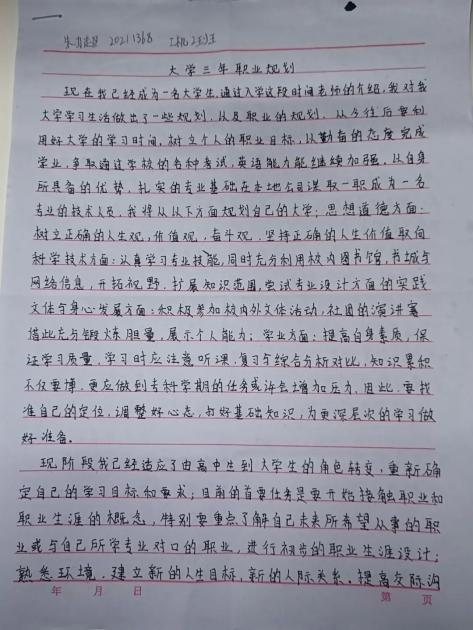 20211368 工机2班
大学三年职业规划
现在我已经成为一名大学生,通过入学这段时间老师的介绍,我对我
大学学习生活做出了一些规划,以及职业的规划,从今往后要利
用好大学的学习时间,树立个人的职业目标,以勤奋的态度完成
学业,争取通过学校的各种考试,英语能力能继续加强,以自身
所具备的优势,扎实的专业基础在本地公司谋取一职成为一名
专业的技术人员,我将从以下方面规划自己的大学;思想道德方面:
树立正确的人生观,价值观,奋斗观,坚持正确的人生价值取向
科学技术方面:认真学习专业技能,同时充分利用校内图书馆,书城与
网络信息,开拓视野,扩展知识范围,尝试专业设计方面的实践
文体与身心发展方面:积极参加校内外文体活动,社团的演讲赛
借此充分锻炼胆量,展示个人能力;学业方面:提高自身素质,保
证学习质量,学习时应注意听课,复习与综合分析对比,知识累积
不仅要博,更应做到专科学期的任务或许会增加压力,因此,要找
准自己的定位,调整好心态,打好基础知识,为更深层次的学习做
好准备。
现阶段我已经适应了由高中生到大学生的角色转变,重新确
定自己的学习目标和要求;目前的首要任务是要开始接触职业和
职业生涯的概念,特别要重点了解自己未来所希望从事的职
业或与自己所学专业对口的职业,进行初步的职业生涯设计;
熟悉环境,建立新的人生目标,新的人际关系。提高交际沟
年 月 日 第 页